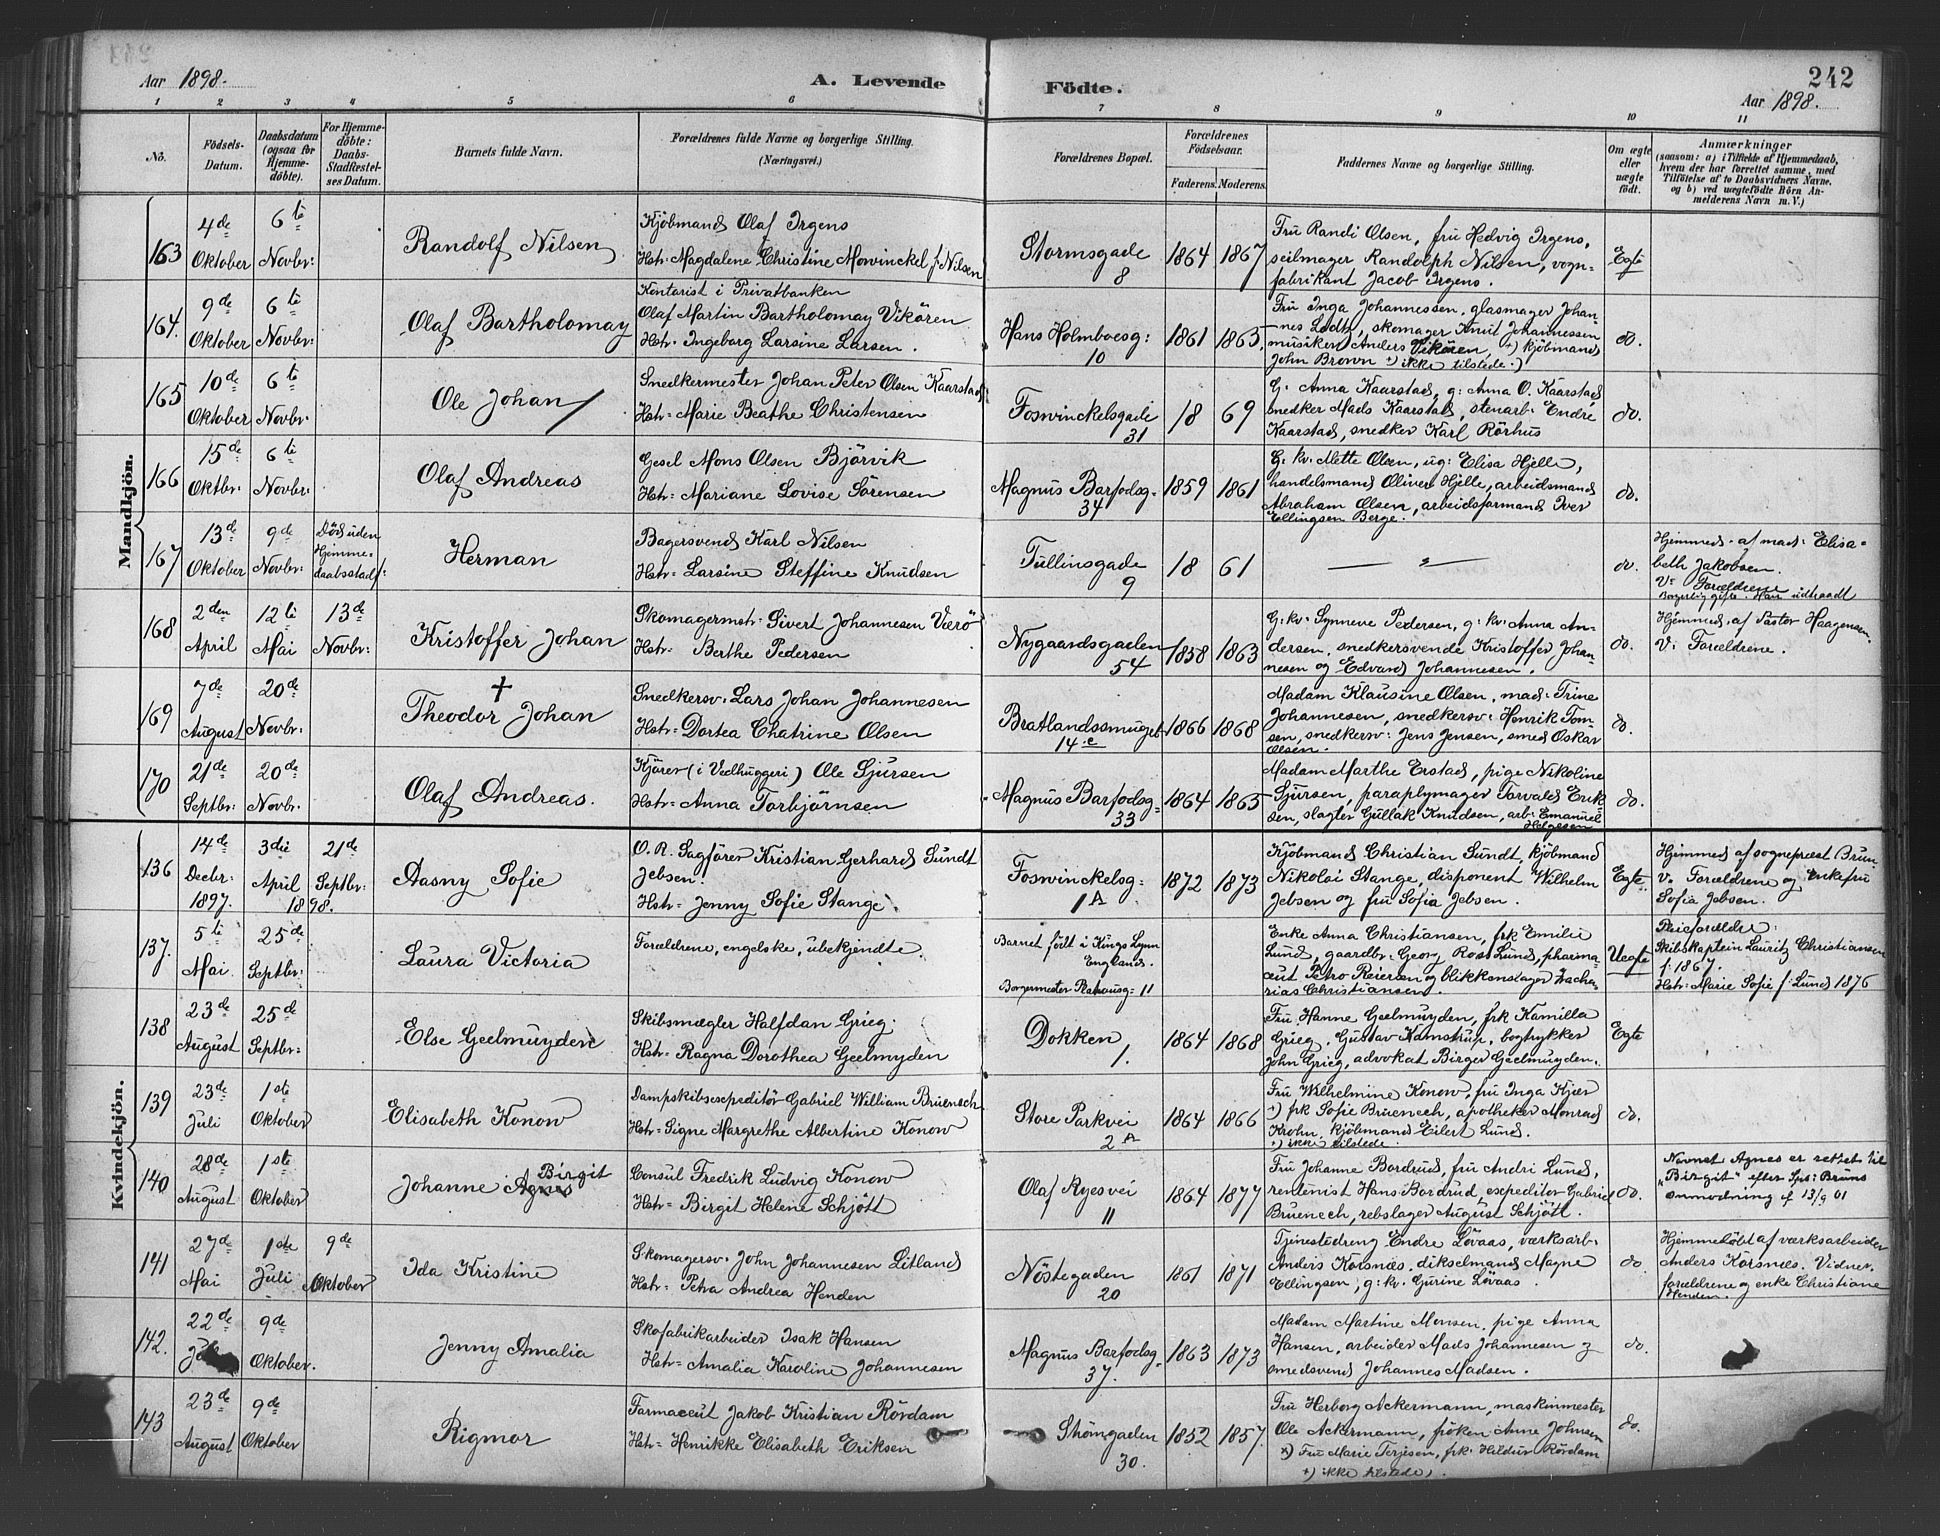 242
Aar 1898.
A. Levende
Födte.
Aar 1898.
1 2 3 4 5 6 7 8 9 10 11
No.
Födsels-Datum.
Daabsdatum (ogsaa for Hjemmedöbte).
For Hjemmedöbte: Daabs-Stadfæstelses Datum.
Barnets fulde Navn.
Forældrenes fulde Navne og borgerlige Stilling.
(Næringsvei.)
Forældrenes Bopæl.
Forældrenes Födselsaar.
Faderens. Moderens.
Faddernes Navne og borgerlige Stilling.
Om ægte eller uægte födt.
Anmærkninger
(saasom: a) i Tilfælde af Hjemmedaab, hvem der har forrettet samme, med Tilföielse af to Daabsvidners Navne, og b) ved uægtefödte Börn Anmelderens Navn m. V.)
Mandkjön.
163
4de Oktober
6te Novbr:
Randolf Nilsen
Kjöbmand Olaf Irgens
Hstr: Magdalene Christine Mowinckel f. Nilsen
Stormsgade 8
1864 1867
Fru Randi Olsen, fru Hedvig Irgens,
seilmager Randolph Nilsen, vogn=
fabrikant Jacob Irgens.
Egte
164.
9de Oktober
6te Novbr:
Olaf Bartholomay
Kontorist i Privatbanken
Olaf Martin Bartholomay Vikören
Hstr. Ingeborg Larsine Larsen.
Hans Holmboesg: 10
1861 1865
Fru Inga Johannessen, glasmager Johan-
nes Lodtz, skomager Knut Johannessen
musiker Anders Vikören, +) kjöbmand
John Brown +) ikke tilstede.)
do.
165
10de Oktober
6te Novbr:
Ole Johan
Snedkermester Johan Peter Olsen Kaarstad
Hstr= Marie Beathe Christensen
Fosvinckelsgade 31
18 69
G: Anna Kaarstad, g: Anna O. Kaarstad
snedker Mads Kaarstad, stenarb: Endre
Kaarstad, snedker Karl Rörhus
do.
166
15de Oktbr:
6te Novbr:
Olaf Andreas
Gesel Mons Olsen Björvik
Hstr= Mariane Lovise Sörensen
Magnus Barfodsg. 34
1859 1861
G: kv: Mette Olsen, ug: Elisa Hjelle,
handelsmand Oliver Hjelle, arbeidsmand
Abraham Olsen, arbeidsformand Iver
Ellingsen Berge.
do.
167
13de Oktober
9de Novbr:
Död uden Hjemme= daabsstadf:
Herman
Bagersvend Karl Nilsen
Hstr= Larsine Steffine Knudsen
Tullinsgade 9
18 61
do.
Hjemmed. af mad: Elisa=
beth Jakobsen.
V: Forældrene
Borgerlig gifte. Han udtraadt
168
2den April
12te Mai
13de Novbr:
Kristoffer Johan
Skomagermstr. Sivert Johannesen Værö
Hstr. Berthe Pedersen
Nygaardsgaden 54
1858 1863
G: kv: Synneve Pedersen, g: kv: Anna An-
dersen, snedkersvende Kristoffer Johan-
nesen og Edvard Johannesen.
do.
Hjemmed. af Pastor Haagensen.
V: Forældrene.
169
7de August
20de Novbr:
Theodor Johan
Snedkersv. Lars Johan Johannesen
Hstr= Dortea Chatrine Olsen
Bratlandssmuget 14 c
1866 1868
Madam Klausine Olsen, mad: Trine
Johannesen, snedkersv: Henrik Tom-
sen, snedkersv: Jens Jensen, smed Oskar
Olsen.
do.
170
21de Septbr:
20de Novbr:
Olaf Andreas.
Kjörer (i Vedhuggeri) Ole Sjursen
Hstr= Anna Torbjörnsen
Magnus Barfodsg= 33
1864 1865
Madam Marthe Erstad, pige Nikoline
Sjursen, paraplymager Torvald Erik-
sen, slagter Gullak Knudsen, arb: Emanuel
Helgesen
do.
Kvindekjön.
136
14de Decbr: 1897.
3die April 1898.
21de Septbr:
Aasny Sofie
O. R. Sagförer Kristian Gerhard Sundt
Jebsen.
Hstr= Jenny Sofie Stange
Fosvinckelsg= 1 A
1872 1873
Kjöbmand Christian Sundt, kjöbmand
Nikolai Stange, disponent Wilhelm
Jebsen og fru Sofia Jebsen.
Egte.
Hjemmed af sognepræst Brun
V. Forældrene og Enkefru
Sofia Jebsen.
137.
5te Mai
25de Septbr:
Laura Victoria
Forældrene, engelske, ubekjendte.
Barnet födt i Kings Lynn
England.
Borgermester Platousg= 11
Enke Anna Christiansen, frk Emilie
Lund, gaardbr: Georg Ross Lund, pharma=
ceut Peter Reiersen og blikkenslager Zacha-
rias Christiansen.
Uegte
Pleieforældre:
Skibskaptein Lauritz Christiansen
f: 1867.
Hstr: Marie Sofie f: Lund 1876
138
23de August
25de Septbr=
Else Geelmuyden
Skibsmægler Halfdan Grieg.
Hstr= Ragna Dorothea Geelmyden
Dokken 1.
1864 1868
Fru Hanne Geelmuyden, frk Kamilla
Grieg, Gustav Kamstrup, bogtrykker
John Grieg, advokat Birger Geelmuyden.
Egte
139
23de Juli
1ste Oktober
Elisabeth Konow
Dampskibsexpeditör Gabriel William Bruenech
Hstr= Signe Margrethe Albertine Konow
Store Parkvei 2 A
1864 1866
Fru Wilhelmine Konow, fru Inga Kjær
+) frk Sofie Bruenech, apotheker Monrad
Krohn, kjöbmand Eilert Lund.
+) ikke tilstede.
do.
140
28de August
1ste Oktober
Johanne Agnes Birgit
Consul Fredrik Ludvig Konow
Hstr= Birgit Helene Schjött
Olaf Ryesvei 11
1864 1877
Fru Johanne Bordrud, fru Andri Lund,
rentenist Hans Bordrud, expeditör Gabriel
Bruenech, rebslager August Schjött.
do.
Navnet Agnes er rettet til
"Birgit" efter Sps: Bruns
anmodning af 13/9 01
141
27de Mai
1ste Juli
9de Oktober
Ida Kristine
Skomagersv. John Johannesen Litland
Hstr= Petra Andrea Henden
Nöstegaden 20
1861 1871
Tjenestedreng Endre Lövaas, værksarb.
Anders Korsnæs, dikselmand Magne
Ellingsen, g: kv. Gurine Lövaas.
do.
Hjemmedöbt af værksarbeider
Anders Korsnæs. Vidner
forældrene og enke Christiane
Henden.
142.
22de
9de Oktober.
Jenny Amalia
Skofabrikarbeider Isak Hansen
Hstr= Amalia Karoline Johannesen
Magnus Barfodsg. 37.
1863 1873
Madam Martine Monsen, pige Anna
Hansen, arbeider Mads Johannesen og
smedsvend Johannes Madsen.
do.
143
23de August
9de Oktober
Rigmor
Farmaceut Jakob Kristian Rördam
Hstr= Henrikke Elisabeth Eriksen
Strömgaden 30.
1852 1857.
Fru Herborg Ackermann, maskinmester
Ole Ackermann, fröken Anne Johnsen
+) Fru Marie Terjesen, frk: Hildur Rördam
+) ikke tilstede.
do.